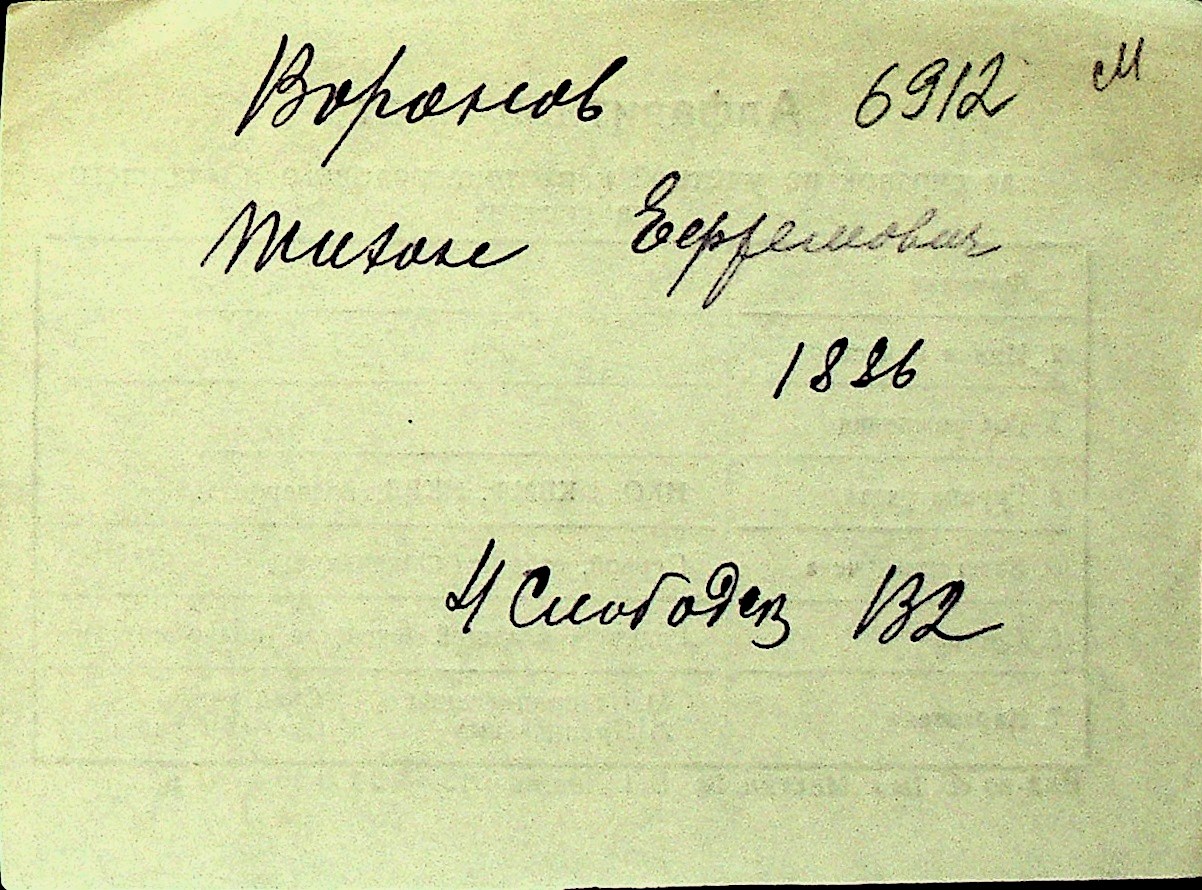 Воронов 6912 м
Тихон Ефремович
1886
4 Слободск В2